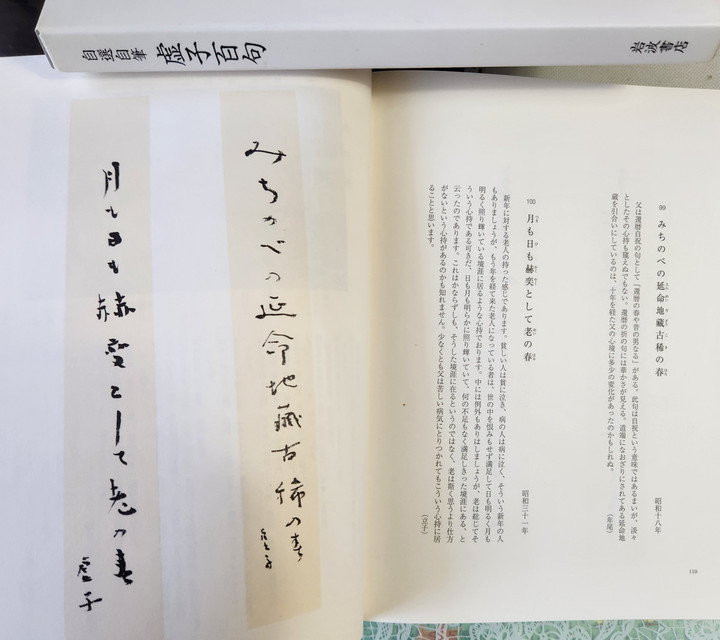 自選自筆 虚子百句 岩波書店
99 みちのべの延命地蔵古稀の春 昭和十八年
父は還暦自祝の句として「還暦の春や昔の男なる」がある。此句は自祝という意味ではあるまいが、淡々
としたその心持も窺えぬでもない。還暦の折の句には華かさが見える。道端になおざりにされてある延命地
蔵を引合いにしているのは、十年を経た父の心境に多少の変化があったのかもしれぬ。
（年尾）
100 月も日も赫奕として老の春 昭和三十一年
新年に対する老人の持った感じであります。貧しい人は貧に泣き、病の人は病に泣く、そういう新年の人
もありましょうが、もう年を経て来た老人になっている者は、世の中を恨みもせず満足して日も明るく月も
明るく照り輝いている境涯に居るような心持でおります。中には例外もありはしましょうが、老は総じてそ
ういう心持である可きだ、日も月も明らかに照り輝いていて、何の不足もなく満足しきった境涯にある、と
云ったのであります。これはかならずしも、そうした境涯に在るというのではなく、老は斯く思うより仕方
がないという心持があるのかも知れません。少なくとも父は苦しい病気にとりつかれてもこういう心持に居
ることと思います。
（立子）
110
みちのべの延命地蔵古稀の春
虚子
月も日も赫奕として老の春
虚子